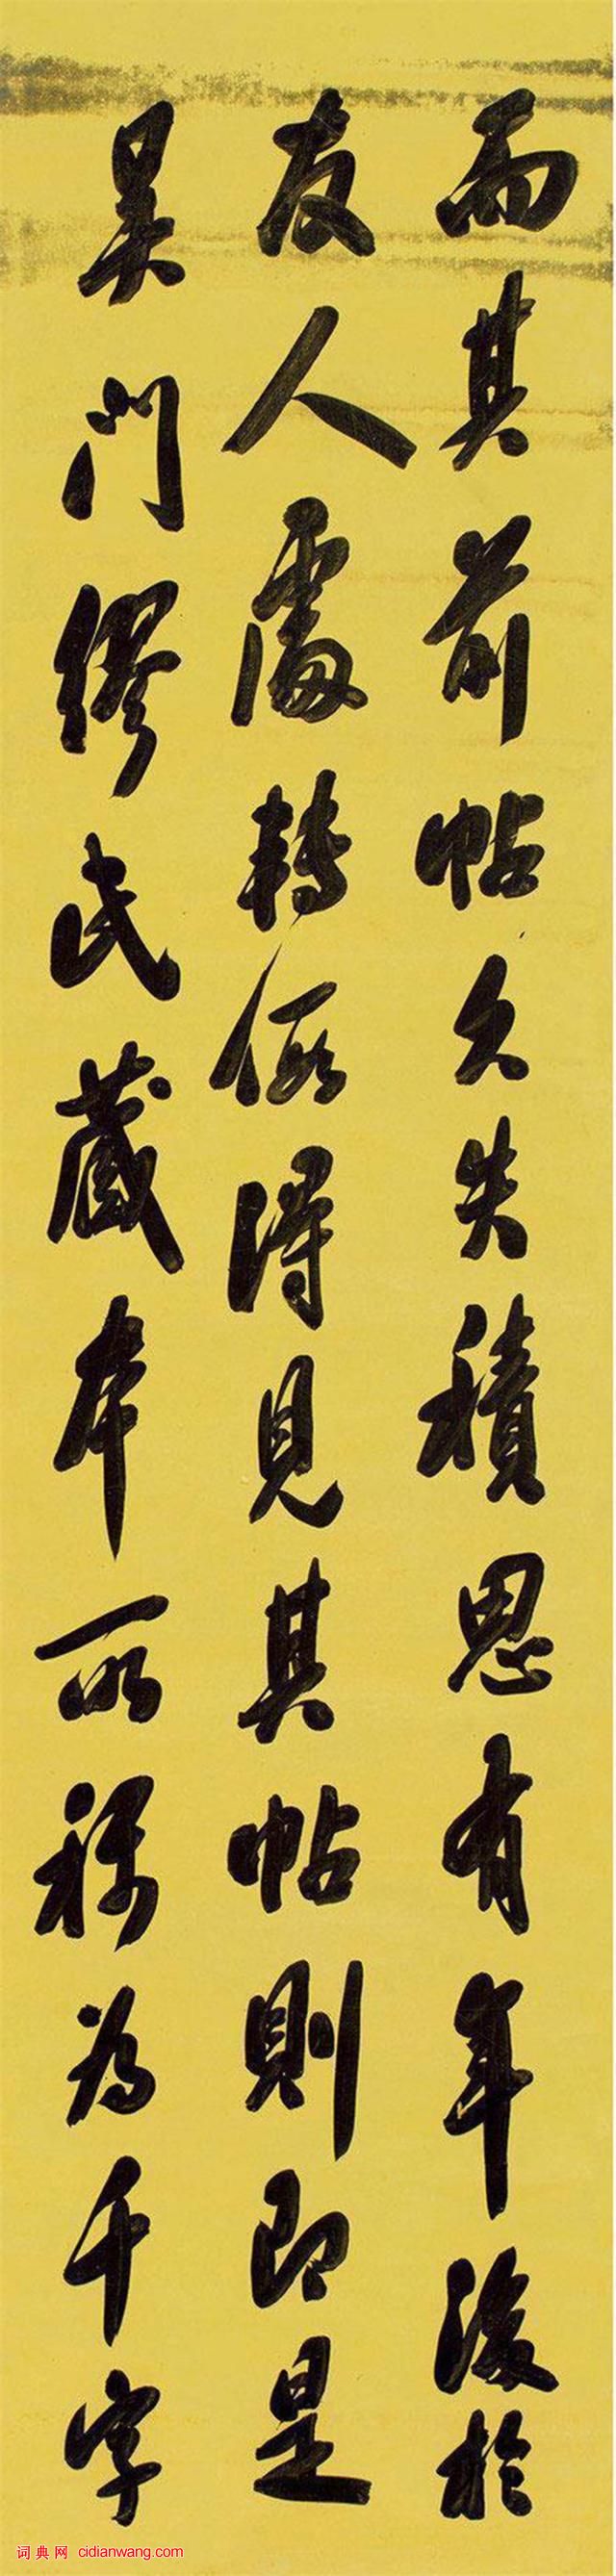 而其前帖久失積思有年後於
友人處轉假得見其帖則即是
吴門繆氏藏本所稱為千字
词典网 cidianwang.com